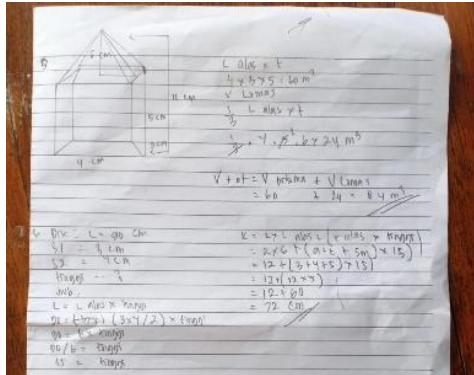 5
6 cm
11 cm
5 cm
2 cm
4 cm
L alas × t
4 × 3 × 5 = 60 m³
V Limas
1/3 L alas × t
6 × 24 m³
V tot = V prisma + V Limas
= 60 + 24 = 84 m³
6. Dik = L = 90 cm
S1 = 3 cm
S2 = 4 cm
tinggi = ?
Jwb.
L = L alas × tinggi
90 = (3×4/2) × tinggi
90/6 = tinggi
15 = tinggi
K = 2 × L alas + (k alas × tinggi)
= 2 × 6 + (a + t + sm) × 15)
= 12 + (3+4+5) × 15)
= 12 + (12 × 5)
= 12 + 60
= 72 cm